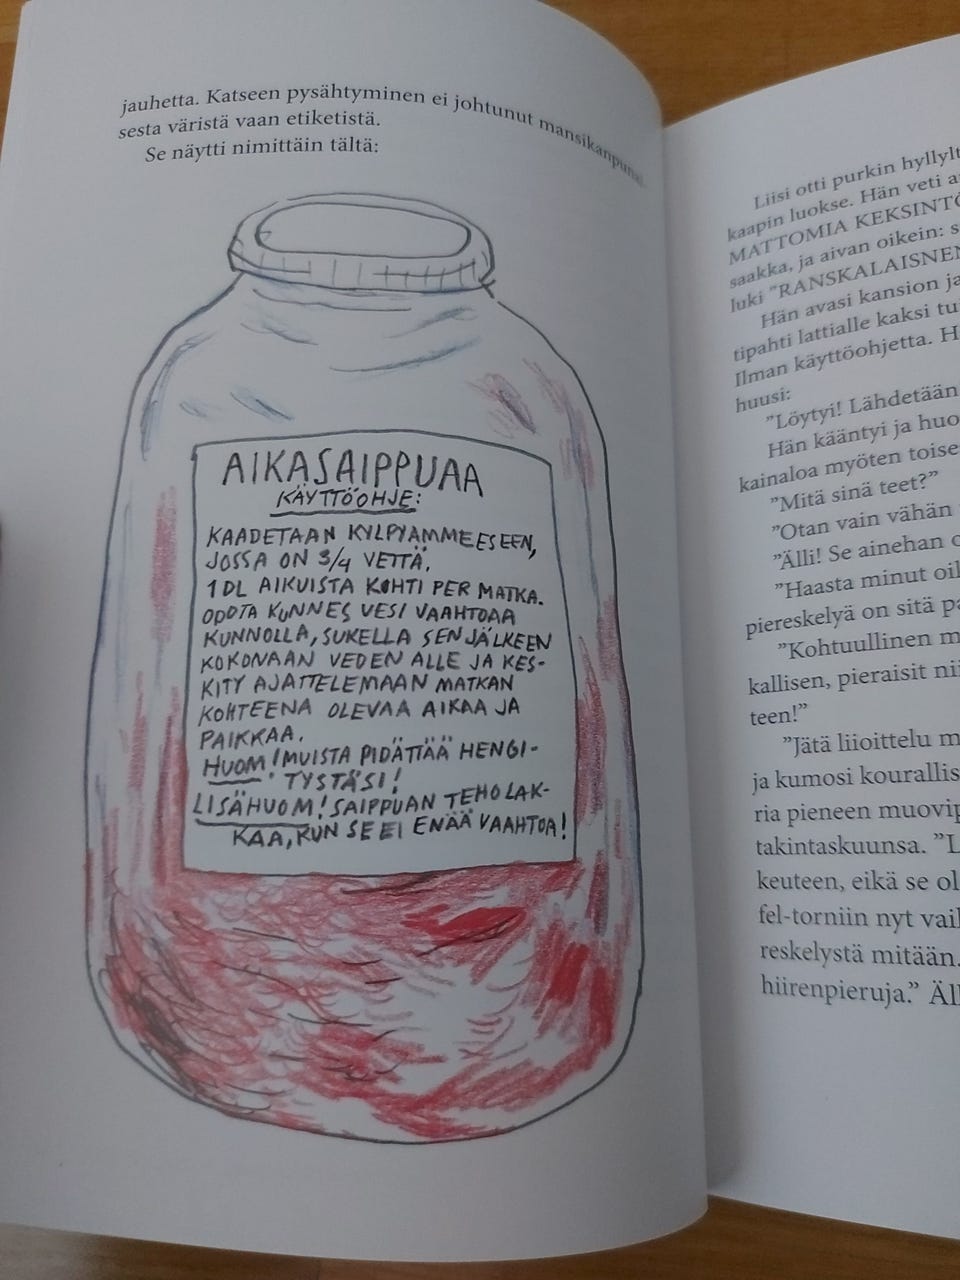 jauhetta. Katseen pysähtyminen ei johtunut mansikanpunai-
sesta väristä vaan etiketistä.
Se näytti nimittäin tältä:
AIKASAIPPUAA
KÄYTTÖOHJE:
KAADETAAN KYLPYAMMEESEEN,
JOSSA ON 3/4 VETTÄ.
1 DL AIKUISTA KOHTI PER MATKA.
ODOTA KUNNES VESI VAAHTOAA
KUNNOLLA, SUKELLA SEN JÄLKEEN
KOKONAAN VEDEN ALLE JA KES-
KITY AJATTELEMAAN MATKAN
KOHTEENA OLEVAA AIKAA JA
PAIKKAA.
HUOM! MUISTA PIDÄTTÄÄ HENGI-
TYSTÄSI!
LISÄHUOM! SAIPPUAN TEHO LAK-
KAA, KUN SE EI ENÄÄ VAAHTOA!
Liisi otti purkin hyllylt
kaapin luokse. Hän veti a
MATTOMIA KEKSINTÖ
saakka, ja aivan oikein: s
luki "RANSKALAISNEN
Hän avasi kansion ja
tipahti lattialle kaksi tu
Ilman käyttöohjetta. H
huusi:
"Löytyi! Lähdetään
Hän kääntyi ja huo
kainaloa myöten toise
"Mitä sinä teet?"
"Otan vain vähän
"Älli! Se ainehan o
"Haasta minut oil
piereskelyä on sitä pa
"Kohtuullinen m
kallisen, pieraisit nii
teen!"
"Jätä liioittelu m
ja kumosi kourallis
ria pieneen muovip
takintaskuunsa. "L
keuteen, eikä se ol
fel-torniin nyt vail
reskelystä mitään.
hiirenpieruja." Äl